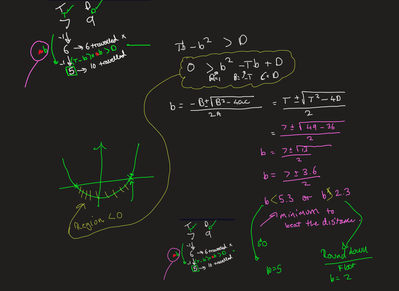 T D
7 9
-1
6 → 6 travelled x
-1 (T-b)*b > D
5 → 10 travelled
Tb - b² > D
0 > b² - Tb + D
A=1 B=-T C=D
b = -B ± √B² - 4ac / 2A = T ± √T² - 4D / 2
= 7 ± √49 - 36 / 2
b = 7 ± √13 / 2
b = 7 ± 3.6 / 2
b < 5.3 or b > 2.3
minimum to
beat the distance
Region < 0
T D
7 9
-1
6 → 6 travelled x
-1 (T-b)*b > D
5 → 10 travelled
so
b=5
Round down
Floor
b = 2